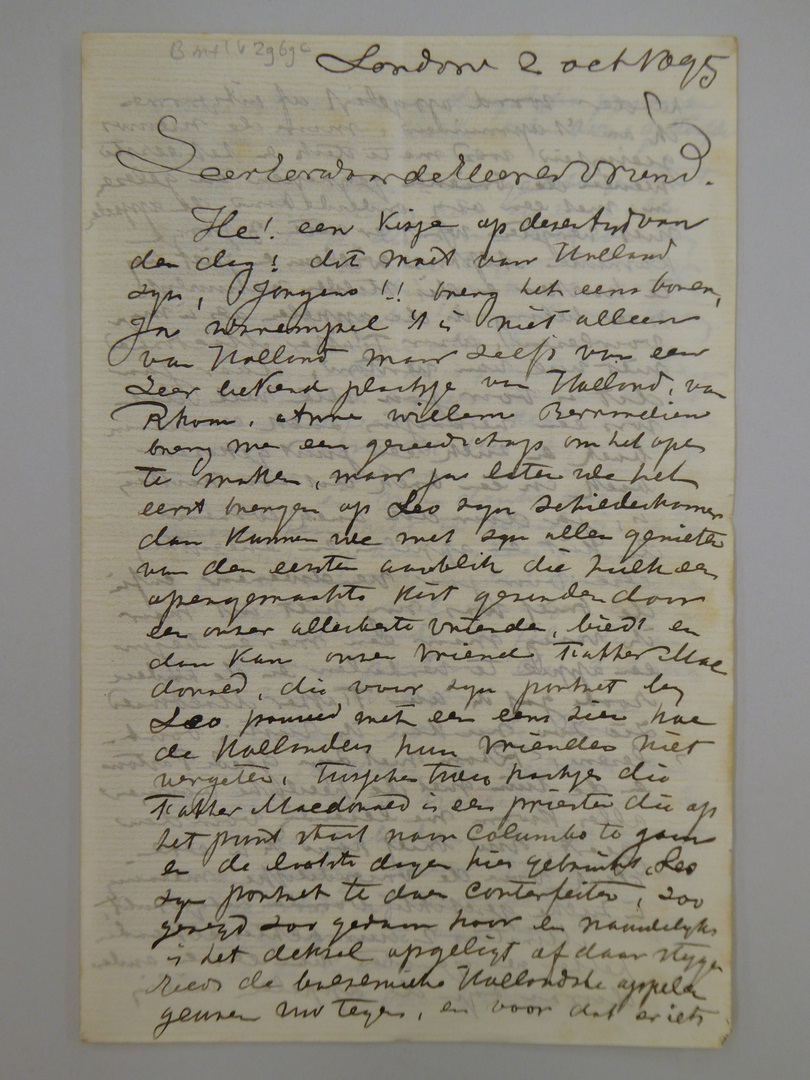 London 2 oct 1895
Zeer Eerwaarde Heer en Vriend.
He! een Kisje op deser tyd van
den dag! dit moet van Holland
syn, Jongens!! breng het eens boven,
Ja warempel 't is niet alleen
van Holland maar selfs van een
zeer bekend plaatsje van Holland, van
Rhoon, Anna willem Bernardien
breng me een gereedschap om het open
te maken, maar ja laten we het
eerst brengen op Leo syn schilderkamer
dan kunnen we met syn allen genieten
van den eersten aanblik die sulk een
opengemaakte Kist gesonden door
een onser allerbeste vrienden, biedt en
dan Kan onsen vriend Father Mac
donned, die voor syn portret by
Leo poseerd met een eens sien hoe
de Hollanders hun vrienden niet
vergeten, tusschen twee haakjes die
Father Macdonned is een priester die op
het punt staat naar Columbo te gaan
en de laatste dagen hier gebruikt Leo
syn portret te doen conterfeiten, soo
gesegd soo gedaan hoor en nauwelyks
is het deksel opgeligt of daar stygen
reeds de Hollandsche appelen
geuren uw tegen, en voor dat er iets